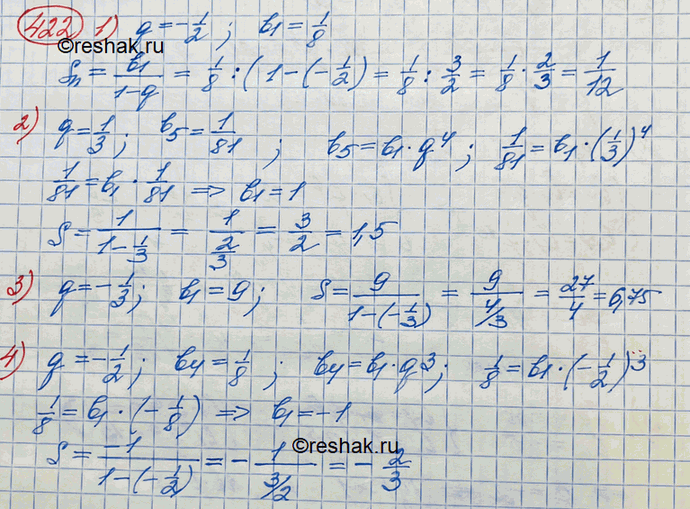 422 1) q = -1/2; b1 = 1/8
©reshak.ru
Sn = b1/(1-q) = 1/8 : (1-(-1/2) = 1/8 : 3/2 = 1/8 · 2/3 = 1/12
2) q = 1/3; b5 = 1/81; b5 = b1 · q^4; 1/81 = b1 · (1/3)^4
1/81 = b1 · 1/81 => b1 = 1
S = 1/(1-1/3) = 1/(2/3) = 3/2 = 1,5
3) q = -1/3; b1 = 9; S = 9/(1-(-1/3)) = 9/(4/3) = 27/4 = 6,75
4) q = -1/2; b4 = 1/8; b4 = b1 · q^3; 1/8 = b1 · (-1/2)^3
1/8 = b1 · (-1/8) => b1 = -1
©reshak.ru
S = -1/(1-(-1/2)) = -1/(3/2) = -2/3